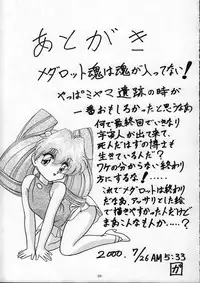 あとがき
メダロット魂は魂が入ってない!
やっぱミヤマ遺跡の時が
一番おもしろかったと思うなあ
何で最終回でいきなり
宇宙人が出て来て、
死んだはずの博士も
生きている人だ?
ワケの分からない終わり
方にするな!・・・・・
これでメダロットは終わり
だなあ、アッサリとした絵
で描きやすかった人だけど
まあこんなも人か・・・・?
2000. 7/26 AM 5:33